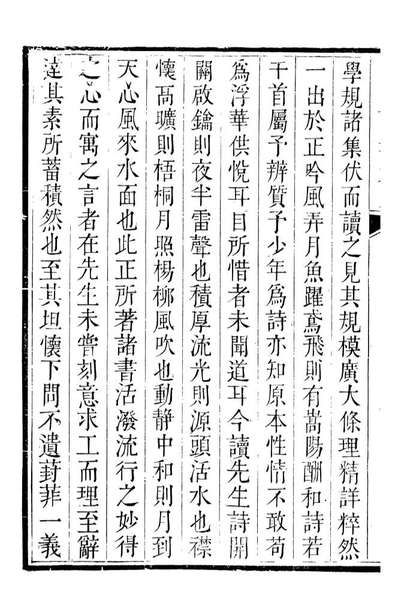 學規諸集伏而讀之見其規模廣大條理精詳粹然
一出於正吟風弄月魚躍鳶飛則有嵩陽酬和詩若
干首屬予辨質予少年為詩亦知原本性情不敢苟
為浮華供悅耳目所惜者未聞道耳今讀先生詩開
關啟鑰則夜半雷聲也積厚流光則源頭活水也襟
懷高曠則梧桐月照楊柳風吹也動靜中和則月到
天心風來水面也此正所著諸書活潑流行之妙得
之心而寓之言者在先生未嘗刻意求工而理至辭
達其素所蓄積然也至其坦懷下問不遺葑菲一義